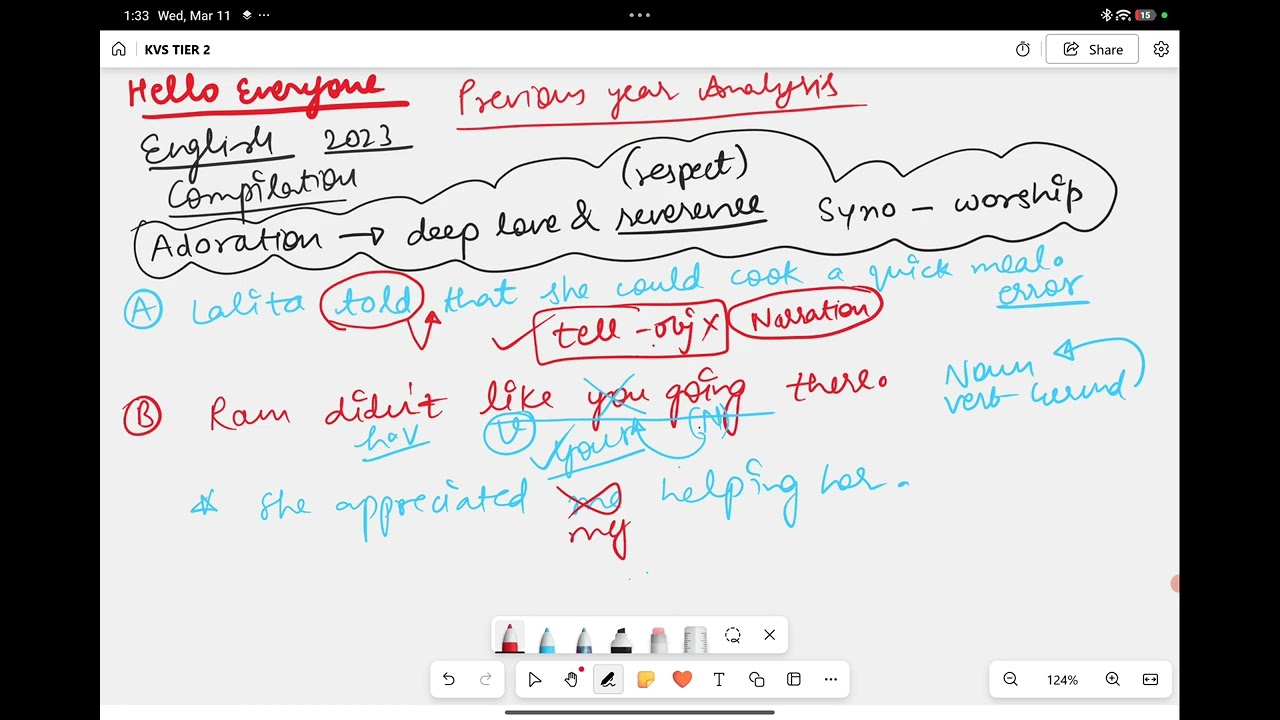 1:33 Wed, Mar 11
15
KVS TIER 2
Share
Hello Everyone
Previous year Analysis
English 2023
Compilation
(respect)
Adoration → deep love & reverence Syno - worship
A Lalita told that she could cook a quick meal.
error
✓ tell - obj x Narration
B Ram didn't like you going there.
Noun
verb - Gerund
hav V ✓ your (N)
☆ She appreciated me helping her.
my
124%